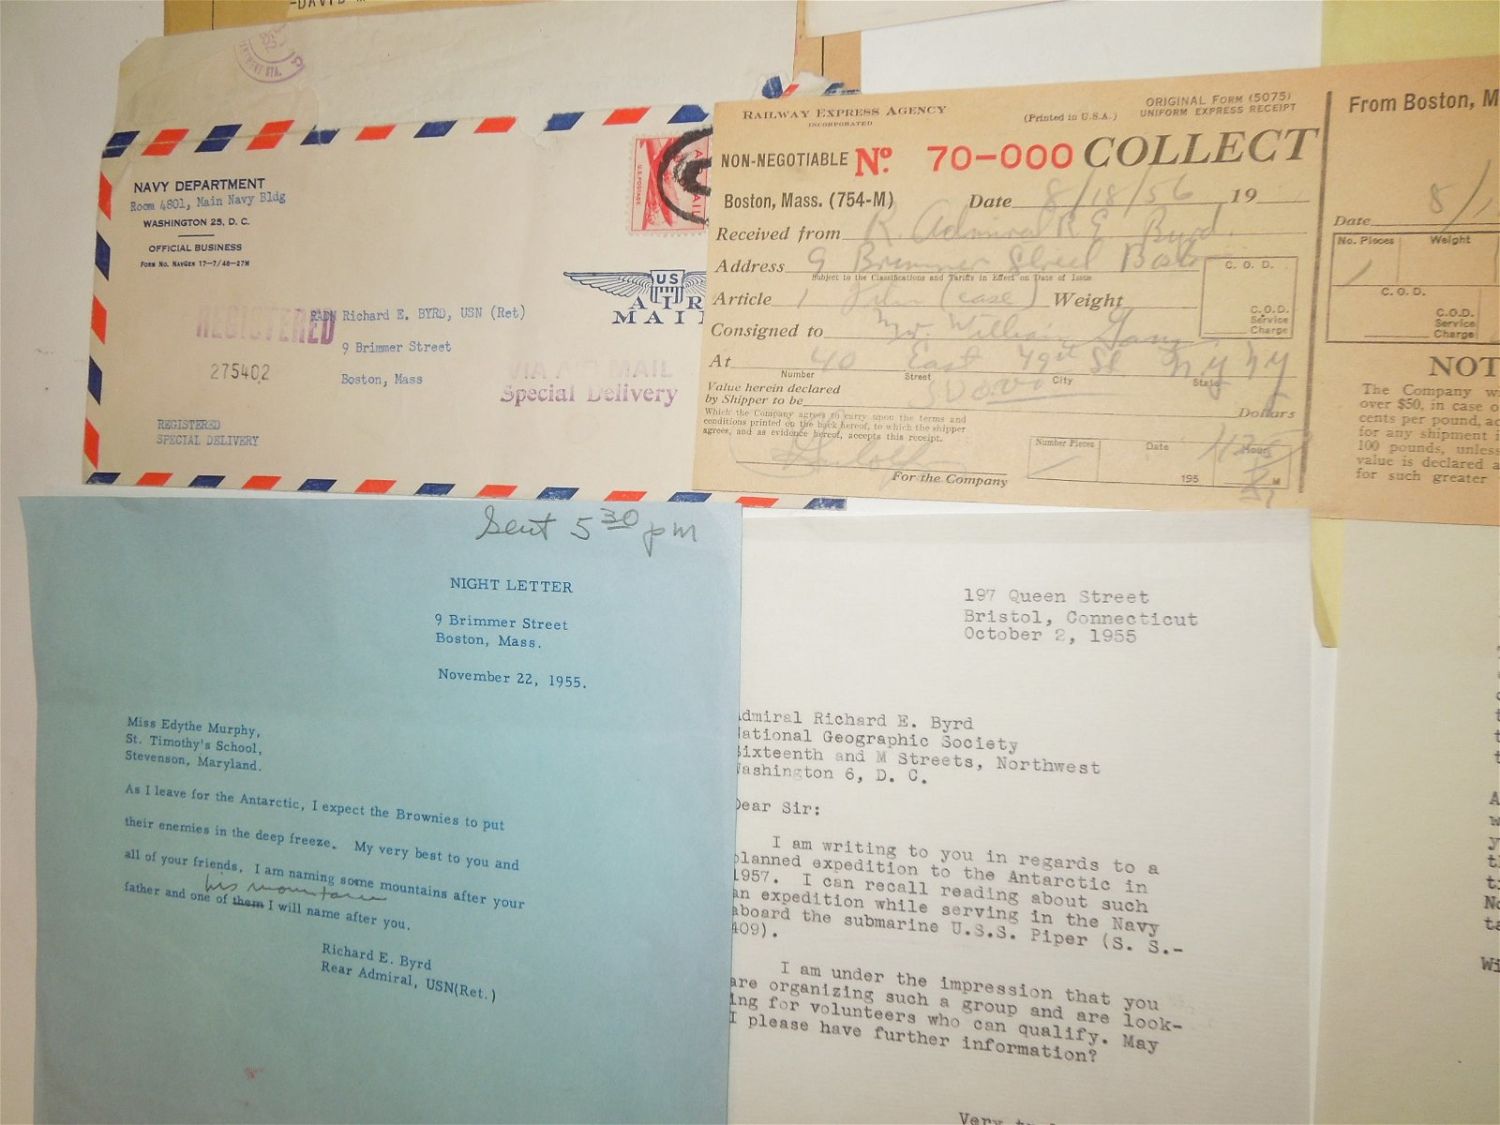 NAVY DEPARTMENT
Room 4801, Main Navy Bldg
WASHINGTON 25, D. C.
OFFICIAL BUSINESS
FORM NO. NAVGEN 17—7/48—27M
US
AIR
MAI
REGISTERED
275402
RADM Richard E. BYRD, USN (Ret)
9 Brimmer Street
Boston, Mass
VIA AIR MAIL
Special Delivery
REGISTERED
SPECIAL DELIVERY
RAILWAY EXPRESS AGENCY
INCORPORATED
(Printed in U.S.A.)
ORIGINAL FORM (5075)
UNIFORM EXPRESS RECEIPT
NON-NEGOTIABLE No. 70-000 COLLECT
Boston, Mass. (754-M) Date 8/18/56 19
Received from R. Admiral R E Byrd
Address 9 Brimmer Street
Subject to the Classifications and Tariffs in Effect on Date of Issue
Article 1 Film (case) Weight
C. O. D.
C.O.D.
Service
Charge
Consigned to Mr. William
At 40 East 49st St N Y N Y
Number Street City State
Value herein declared
by Shipper to be Dollars
Which the Company agrees to carry upon the terms and
conditions printed on the back hereof, to which the shipper
agrees, and as evidence hereof, accepts this receipt.
For the Company
Number Pieces Date Hour
195 M
From Boston, M
Date 8/
No. Pieces Weight
1
C. O. D.
C.O.D.
Service
Charge
NOT
The Company w
over $50, in case o
cents per pound, ac
for any shipment i
100 pounds, unless
value is declared a
for such greater
Sent 5 30 pm
NIGHT LETTER
9 Brimmer Street
Boston, Mass.
November 22, 1955.
Miss Edythe Murphy,
St. Timothy's School,
Stevenson, Maryland.
As I leave for the Antarctic, I expect the Brownies to put
their enemies in the deep freeze. My very best to you and
all of your friends. I am naming some mountains after your
his mountains
father and one of them I will name after you.
Richard E. Byrd
Rear Admiral, USN(Ret.)
197 Queen Street
Bristol, Connecticut
October 2, 1955
dmiral Richard E. Byrd
ational Geographic Society
ixteenth and M Streets, Northwest
ashington 6, D. C.
Dear Sir:
I am writing to you in regards to a
planned expedition to the Antarctic in
1957. I can recall reading about such
an expedition while serving in the Navy
aboard the submarine U.S.S. Piper (S. S.-
409).
I am under the impression that you
are organizing such a group and are look-
ing for volunteers who can qualify. May
I please have further information?